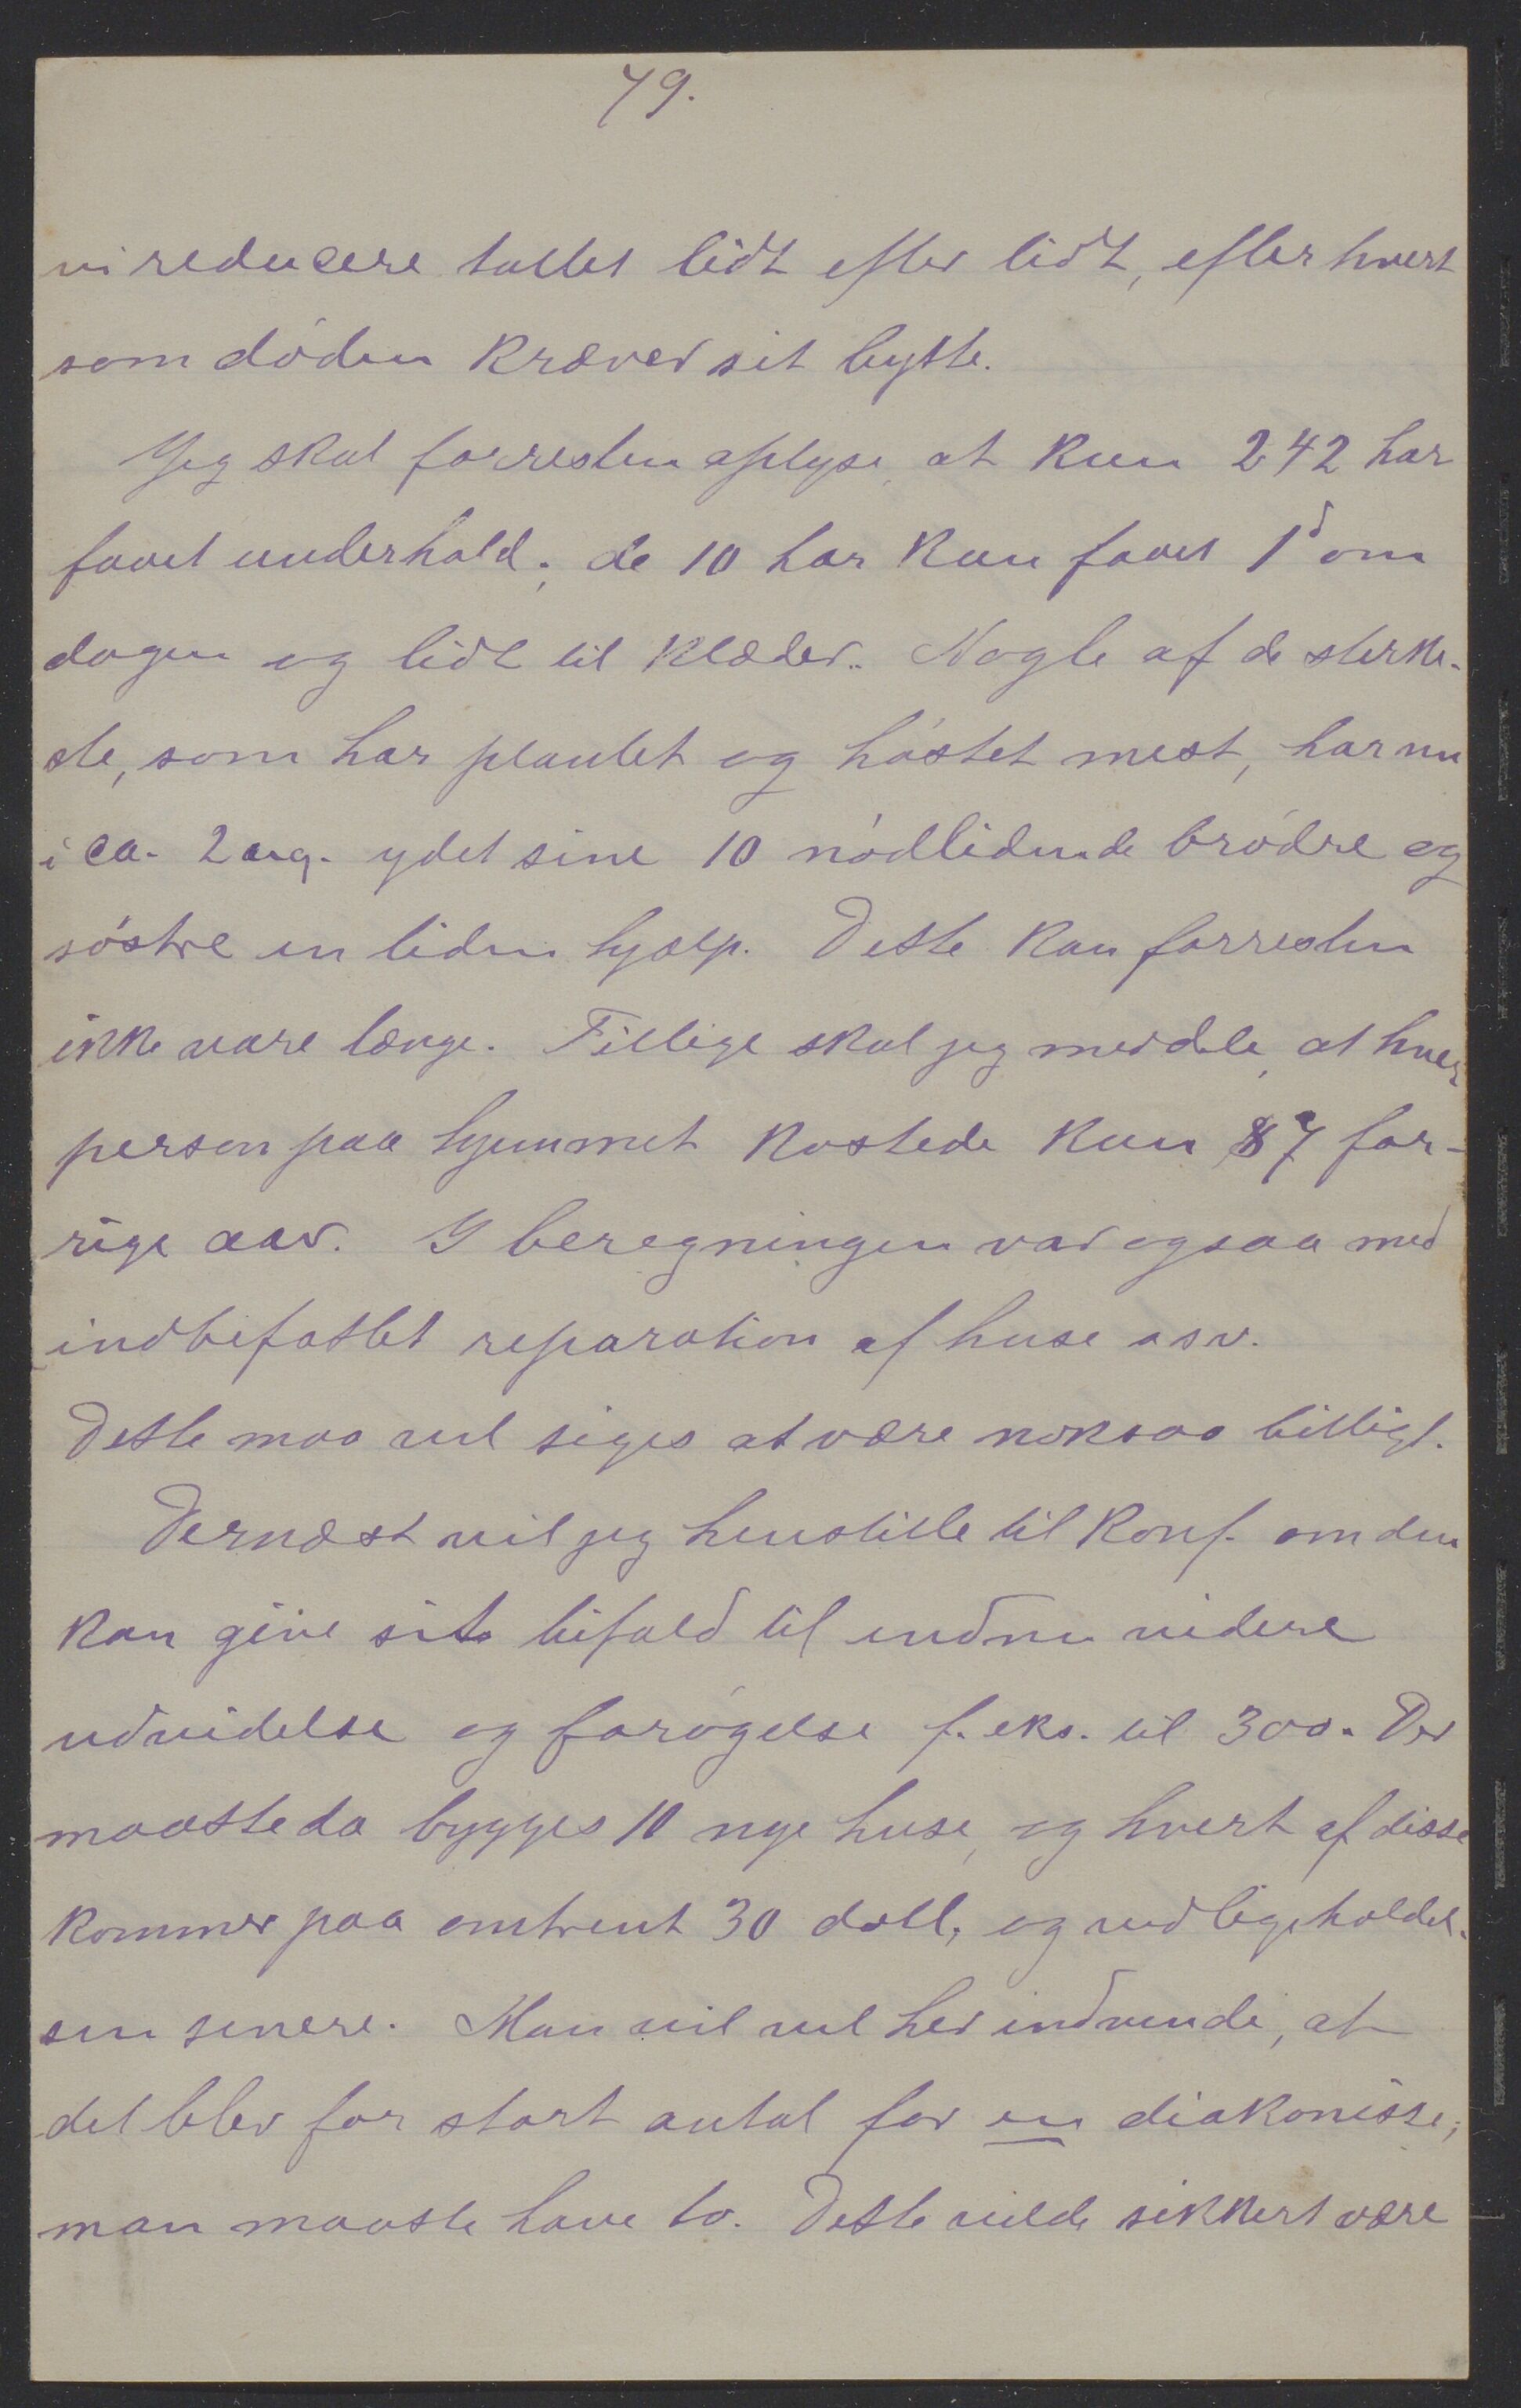 79.
vi reducere tallet lidt efter lidt, efterhvert
som døden kræver sit bytte.
Jeg skal forresten oplyse, at kun 242 har
faaet underhold; de 10 har kun faaet 1d om
dagen og lidt til klæder. Nogle af de sterke-
ste, som har plantet og høstet mest, har nu
i ca. 2 aug. ydet sine 10 nødlidende brødre og
søstre en liden hjælp. Dette kan forresten
ikke vare længe. Tillige skal jeg meddele, at hver
person paa hjemmet kostede kun $7 for-
rige aar. I beregningen var ogsaa med
indbefattet reparation af huse osv.
Dette maa vel siges at være noksaa billigt.
Dernæst vil jeg henstille til Konf. om den
kan give sit bifald til endnu videre
udvidelse og forøgelse f. eks. til 300. Der
maatte da bygges 10 nye huse, og hvert af disse
kommer paa omtrent 30 doll, og vedligeholdel-
sen senere. Man vil vel her indvende, at
det blev for stort antal for en diakonisse;
man maatte have to. Dette vilde sikkert være